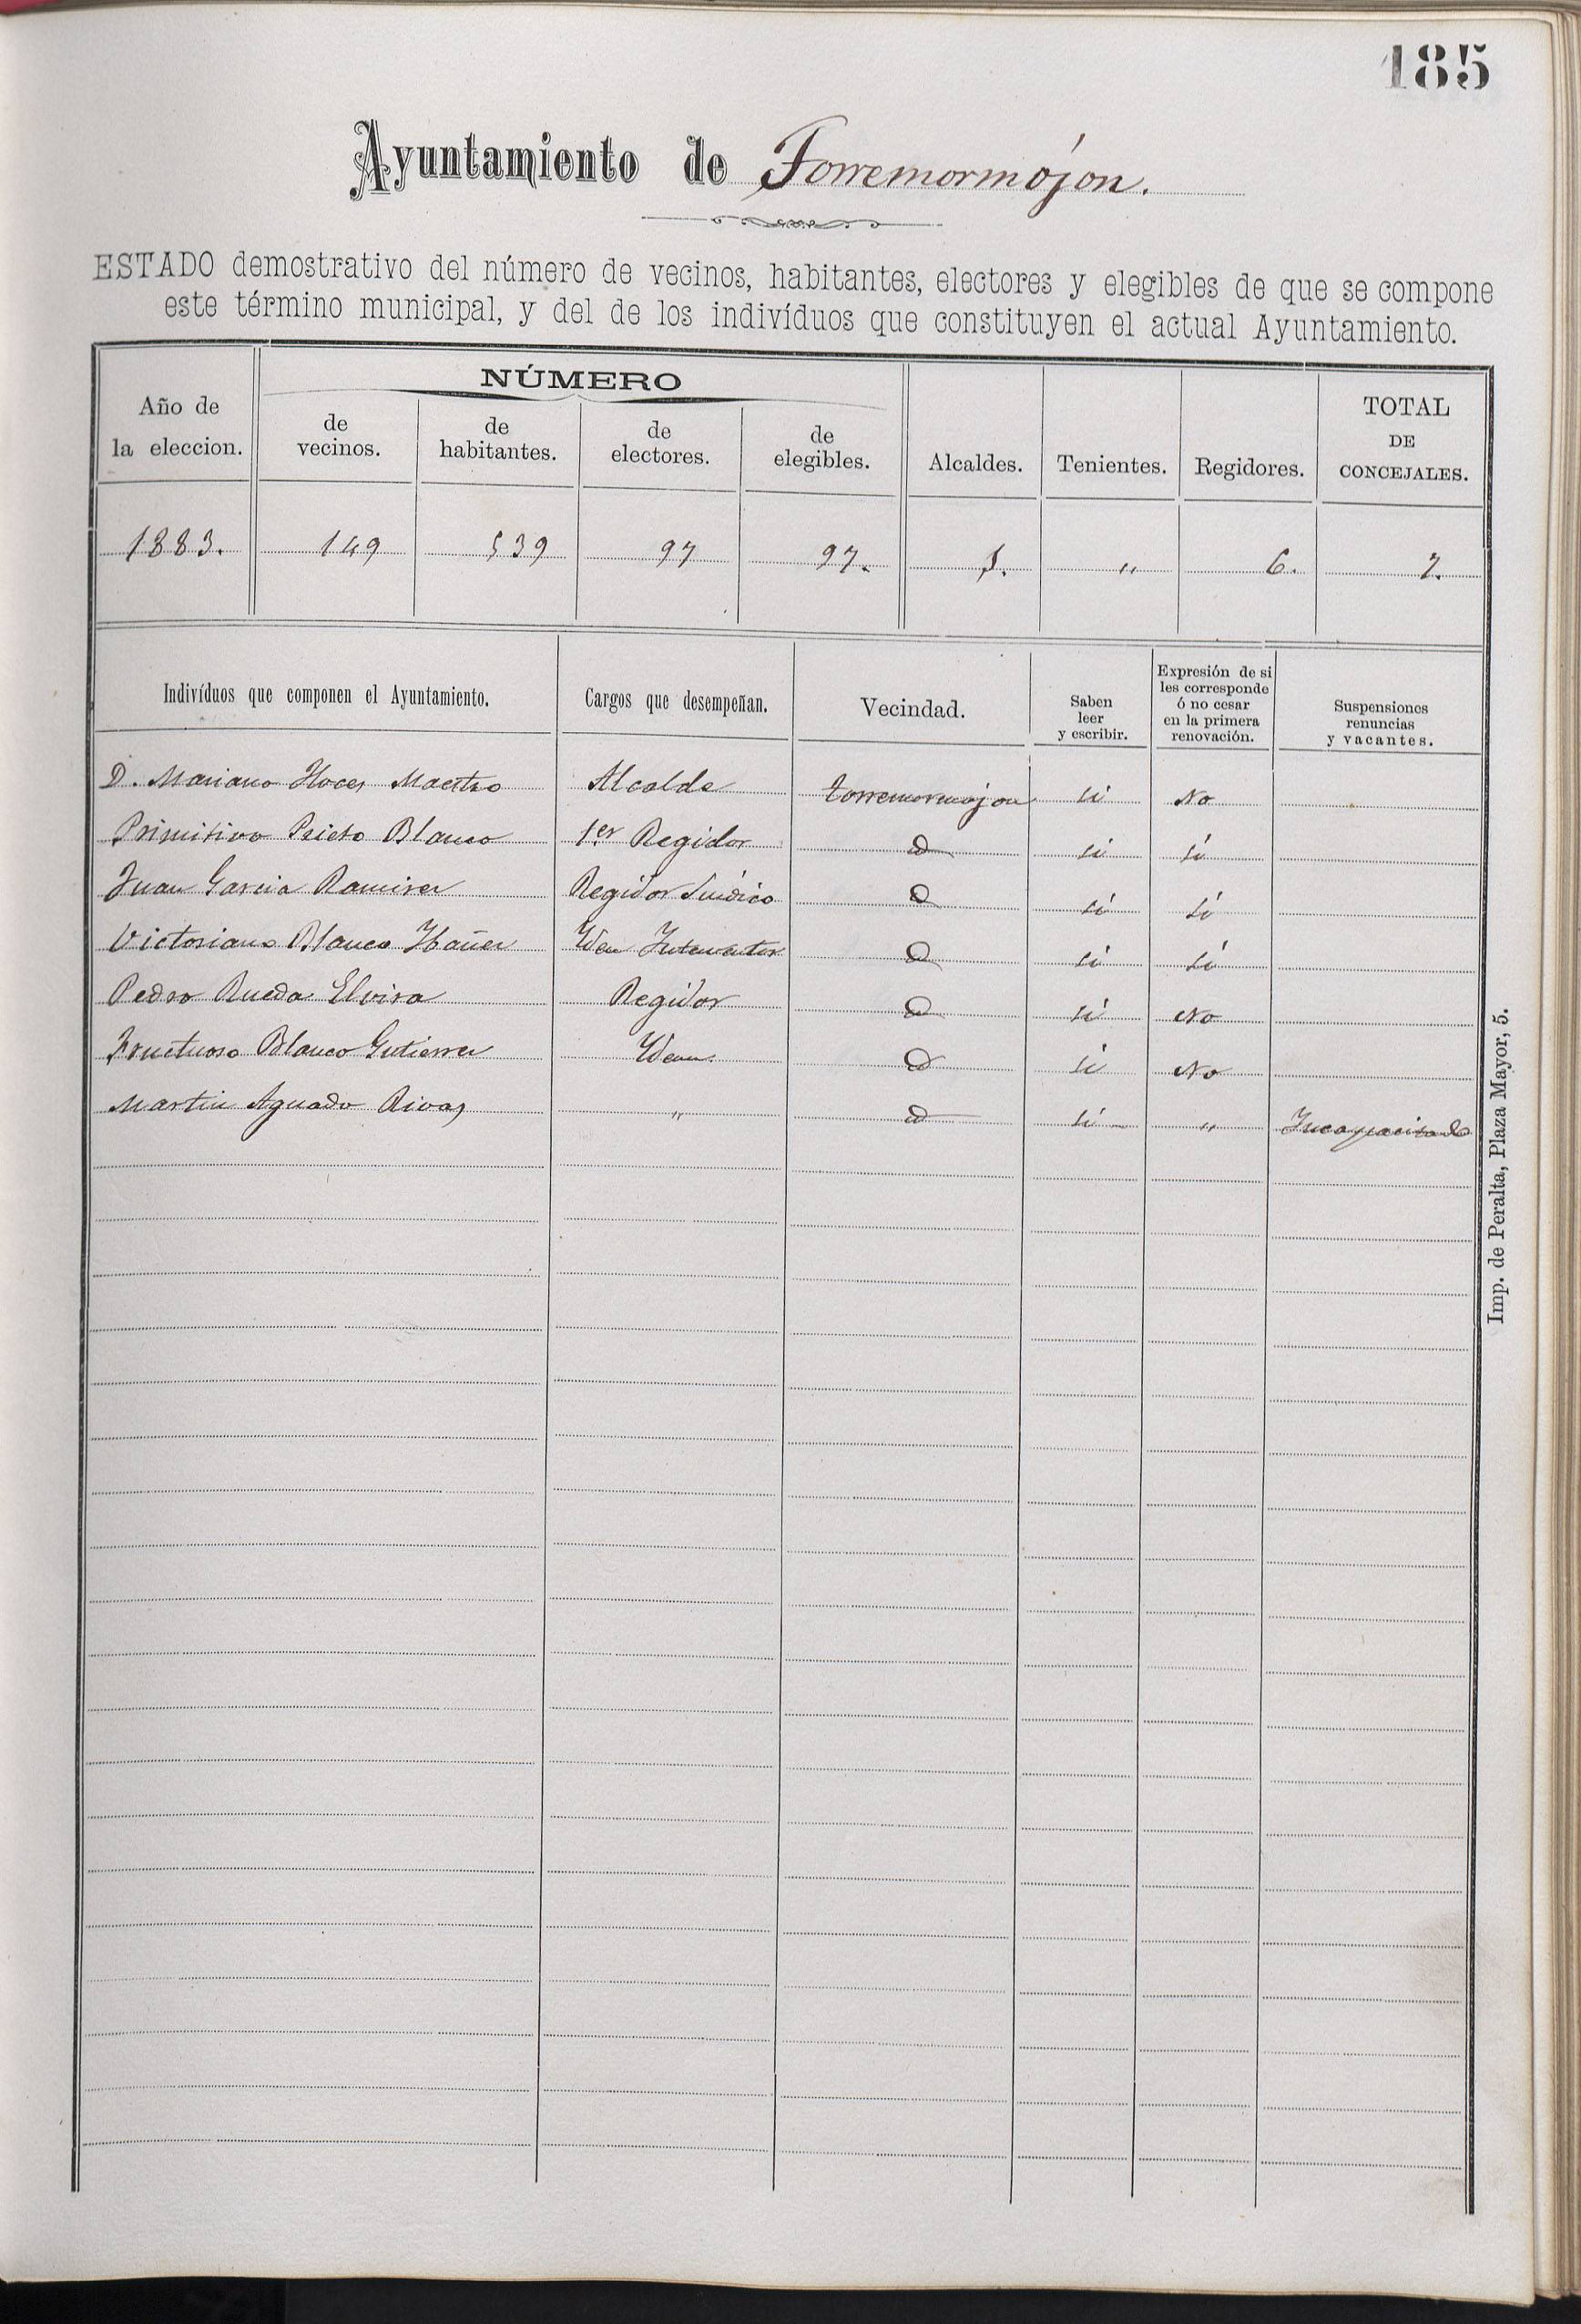 185
Ayuntamiento de Torremormójon.
ESTADO demostrativo del número de vecinos, habitantes, electores y elegibles de que se compone
este término municipal, y del de los indivíduos que constituyen el actual Ayuntamiento.
Año de la eleccion. NÚMERO de vecinos. de habitantes. de electores. de elegibles. Alcaldes. Tenientes. Regidores. TOTAL DE CONCEJALES.
1883. 149 539 97 97. 1. " 6. 7.
Indivíduos que componen el Ayuntamiento. Cargos que desempeñan. Vecindad. Saben leer y escribir. Expresión de si les corresponde ó no cesar en la primera renovación. Suspensiones renuncias y vacantes.
D. Mariano Hoces Maestro Alcalde torremormojon si No
Primitivo Prieto Blanco 1er Regidor id si si
Juan Garcia Ramirez Regidor Sindico id si si
Victoriano Blanco Ibañez Idem Interventor id si si
Pedro Rueda Elvira Regidor id si No
Fructuoso Blanco Gutierrez Idem. id si No
Martin Aguado Rivas " id si " Incapacitado
Imp. de Peralta, Plaza Mayor, 5.